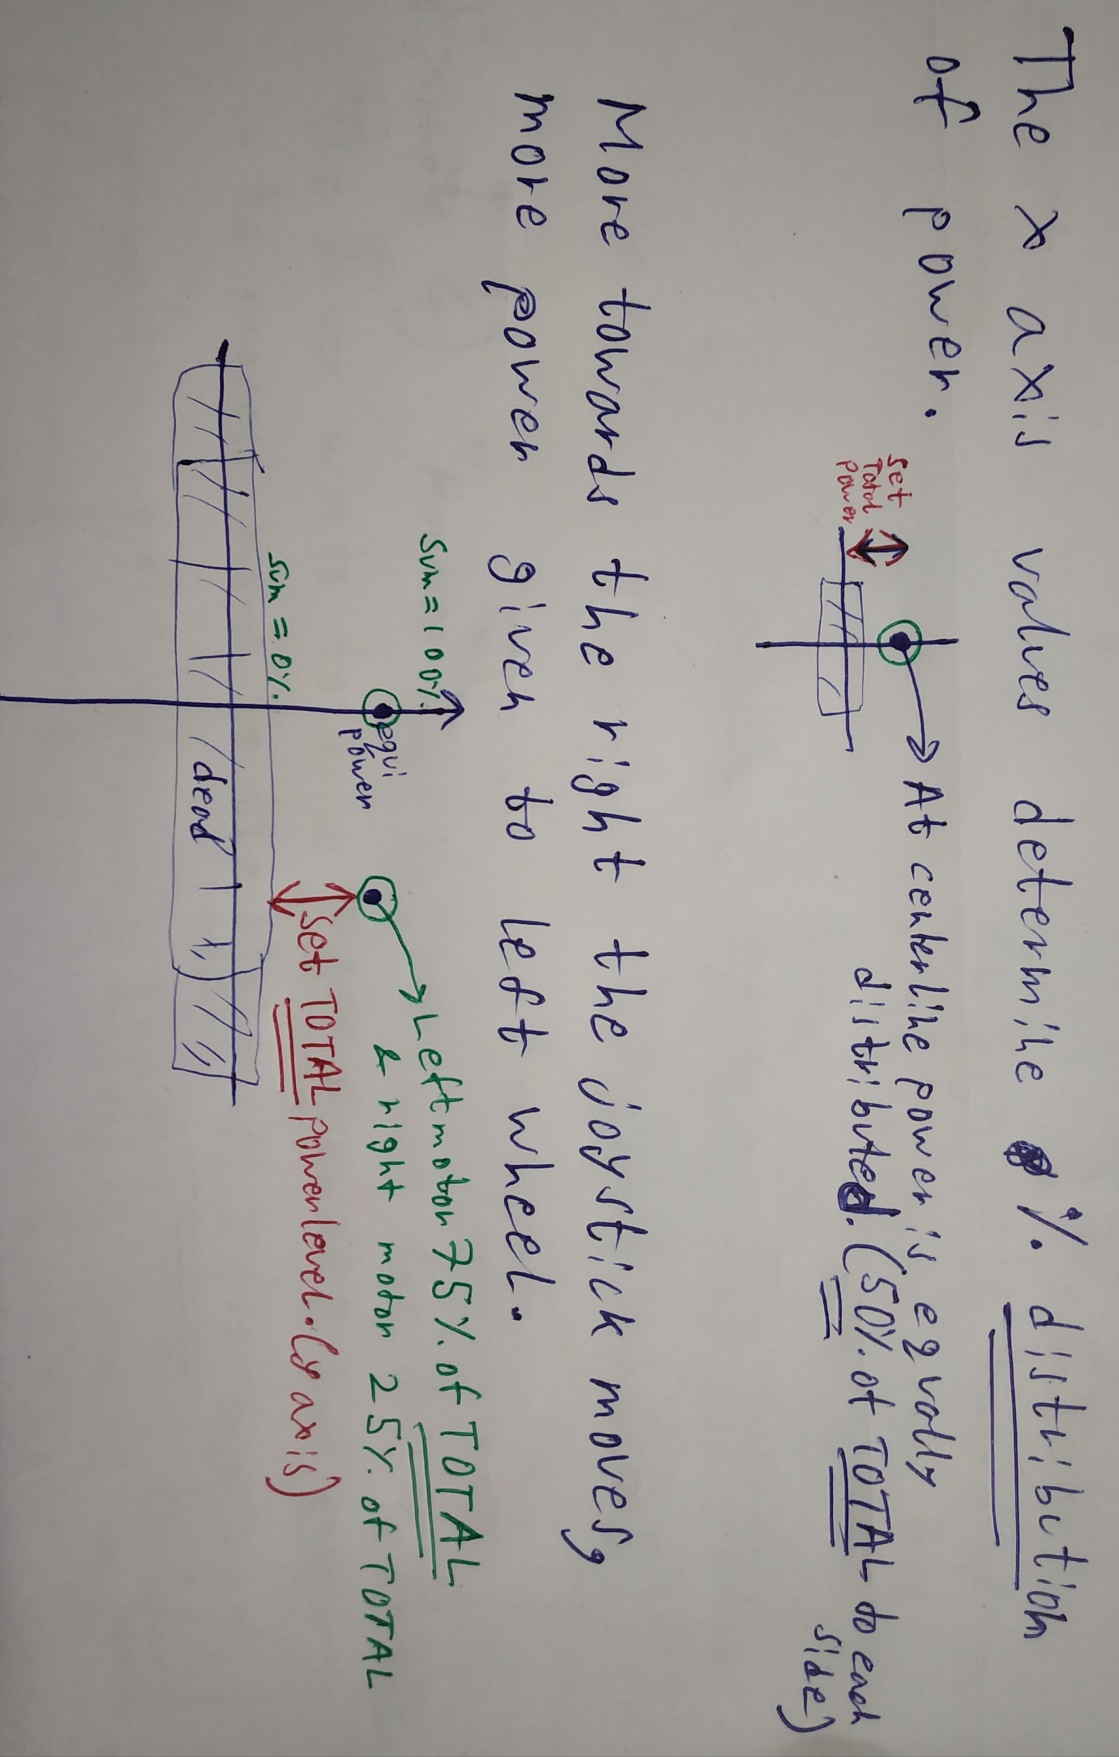 The x axis values determine % distribution
of power.
Set
Total
Power
At centerline power is equally
distributed. (50% of TOTAL to each
side)
More towards the right the joystick moves,
more power given to left wheel.
Sum = 100%
equi
power
Left motor 75% of TOTAL
& right motor 25% of TOTAL
Sum = 0%
Set TOTAL power level. (y axis)
dead